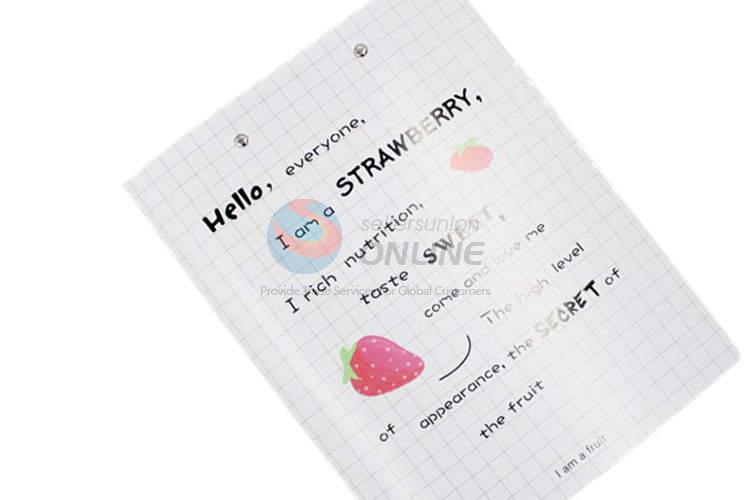 Hello, everyone,
I am a STRAWBERRY,
I rich nutrition,
taste SWEET,
come and love me
The high level
of appearance, the SECRET of
the fruit
I am a fruit
sellersunion
ONLINE
Provide Trade Services For Global Customers